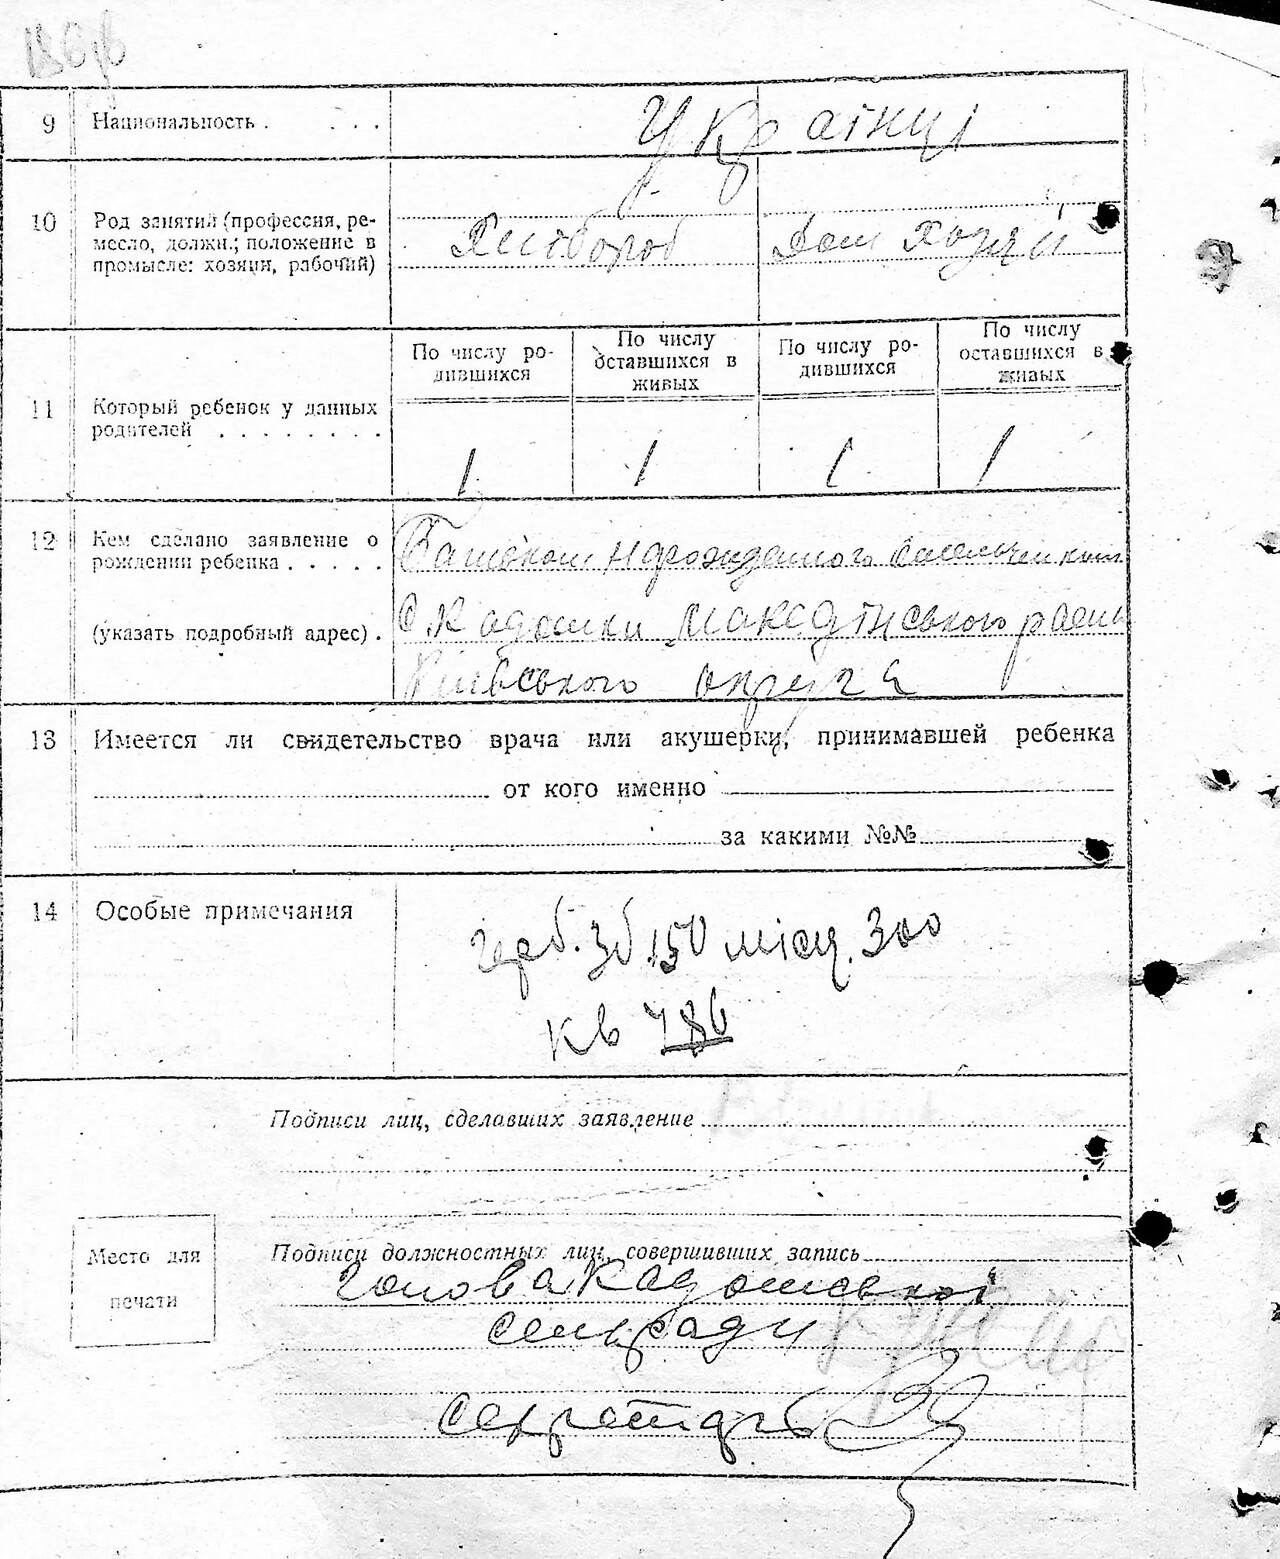 9 Национальность . . . .
Українці
10 Род занятий (профессия, ре-
месло, должн.; положение в
промысле: хозяин, рабочий)
Хлібороб Дом Хозяй
По числу ро-
дившихся
По числу
оставшихся в
живых
По числу ро-
дившихся
По числу
оставшихся в
живых
11 Который ребенок у данных
родителей . . . . . . . .
1 1 1 1
12 Кем сделано заявление о
рождении ребенка . . . . .
Батьком
(указать подробный адрес) .
С. Кодашки
Київського округа
13 Имеется ли свидетельство врача или акушерки, принимавшей ребенка
от кого именно
за какими №№
14 Особые примечания
герб. зб 150 місц. 300
кв 786
Подписи лиц, сделавших заявление
Место для
печати
Подписи должностных лиц, совершивших запись
Голова
сельради
секретарь